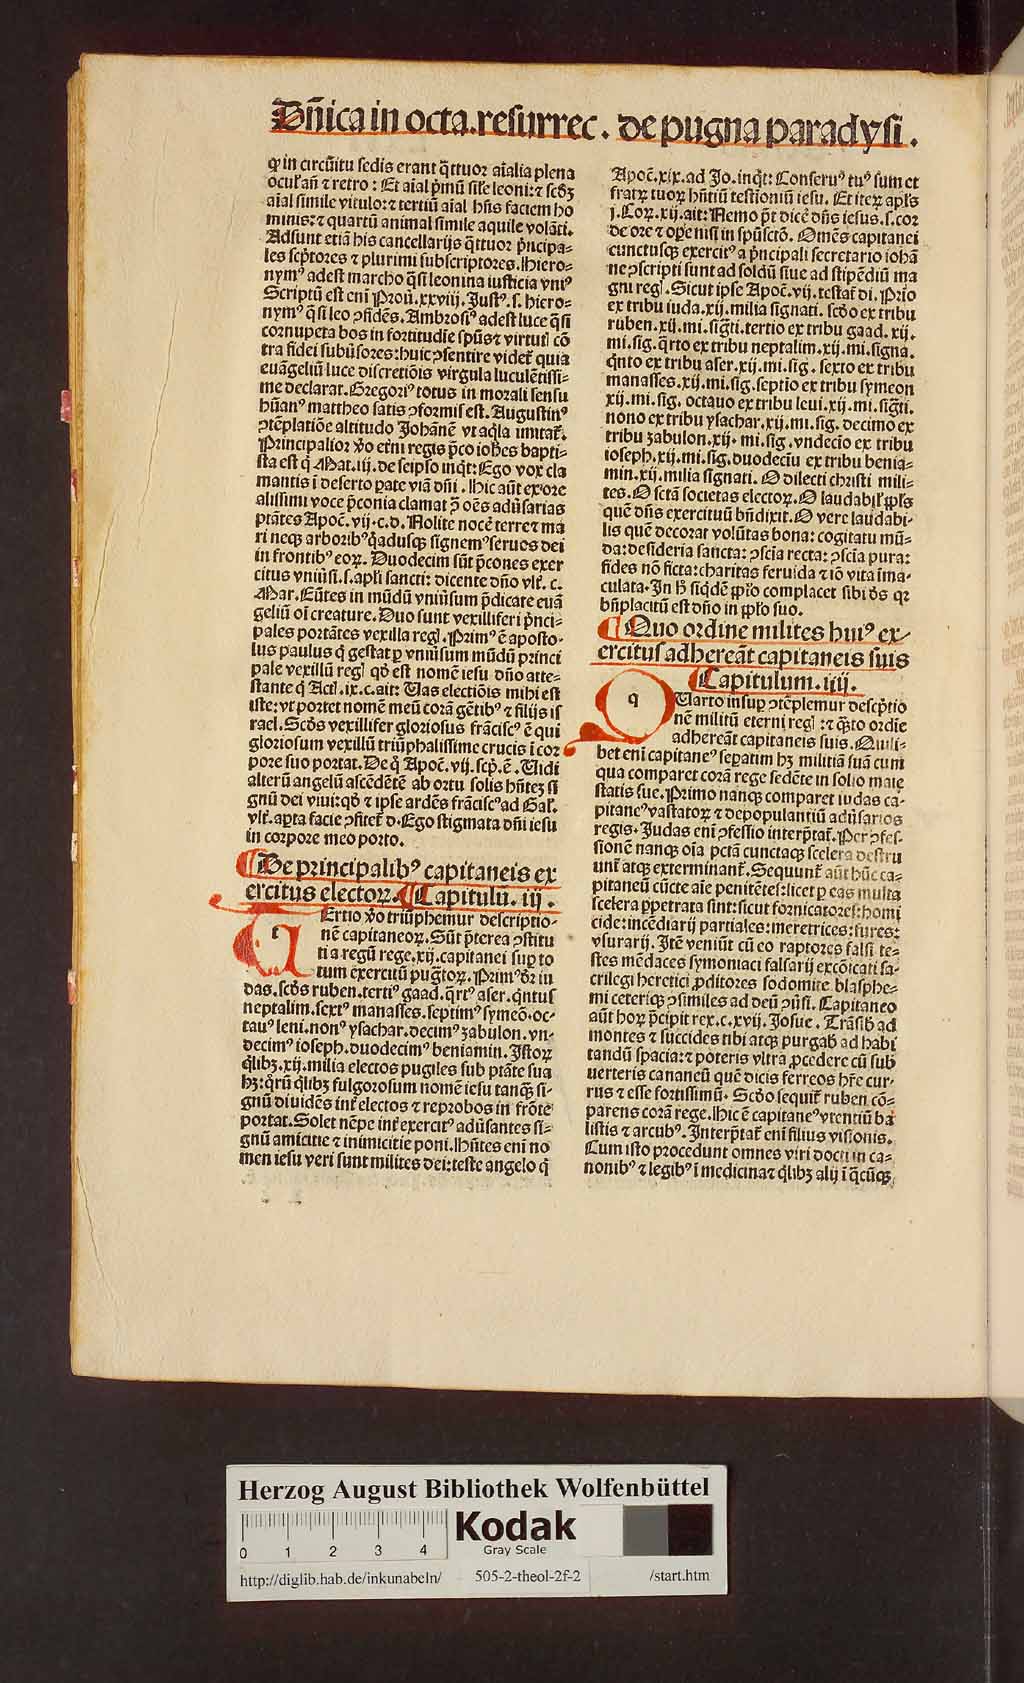 Dn̄ica in octa.resurrec. de pugna paradysi.
ꝙ in circuītu sedis erant q̄ttuor aīalia plena
ocul̕ an̄ ⁊ retro: Et aīal p̄mū sīle leoni:⁊ scd̄ꝫ
aīal simile vitulo:⁊ tertiū aīal hn̄s faciem ho
minis:⁊ quartū animal simile aquile volāti.
Adsunt etiā his cancellarijs q̄ttuor p̄ncipa-
les sc̄ptores ⁊ plurimi subscriptores. Hiero-
nymꝰ adest marcho q̄si leonina iusticia vniꝰ
Scriptū est enī Prou. xxviij. Justꝰ.s. hiero-
nymꝰ q̄si leo ↄfidēs. Ambrosiꝰ adest luce q̄si
cornupeta bos in fortitudīe spūs ⁊ virtutꝭ cō
tra fidei subūsores: huic ↄsentire videt̄ quia
euāgeliū luce discretiōis virgula luculētissi-
me declarat. Gregoriꝰ totus in morali sensu
hūanꝰ mattheo satis ↄformis est. Augustinꝰ
ↄtēplatiōe altitudo Johānē vt aq̄la imitat̄.
Principalior v̄o et̄ni regis p̄co ioh̄es bapti-
sta est q̄ Mat. iij. de seipso inq̄t: Ego vox cla
mantis ī deserto parate viā dn̄i. Hic aūt ex ore
altissimi voce p̄conia clamat ꝑ oēs adūsarias
ptātes Apoc̄. vij. c. d. Nolite nocē terre ⁊ ma
ri neqꝫ arboribꝰ q̄adusqꝫ signemꝰ seruos dei
in frontibꝰ eoꝝ. Duodecim sūt p̄cones exer
citus vniūsi.s. apl̄i sancti: dicente dn̄o vlt̄. c.
Mar. Eūtes in mūdū vniūsum p̄dicate euā
geliū oī creature. Duo sunt vexilliferi p̄nci-
pales portātes vexilla regꝭ. Primꝰ ē aposto-
lus paulus q̄ gestat ꝑ vniūsum mūdū princi
pale vexillū regꝭ qd̄ est nomē iesu dn̄o atte-
stante q̄ Act. ix. c. ait: Uas electiōis mihi est
iste: vt portet nomē meū corā gētibꝰ ⁊ filijs is
rael. Scd̄s vexillifer gloriosus frāciscꝰ ē qui
gloriosum vexillū triūphalissime crucis ī cor
pore suo portat. De q̄ Apoc̄. vij. scp̄. ē. Uidi
alterū angelū ascēdētē ab ortu solis hn̄teꝫ si
gnū dei viui: qd̄ ⁊ ipse ardēs frāciscꝰ ad Gal̄.
vlt̄. aꝑta facie ↄfitet̄ d. Ego stigmata dn̄i iesu
in corpore meo porto.
De principalibꝰ capitaneis ex
ercitus electoꝝ. Capitulū. iij.
tErtio v̄o triūphemur descriptio-
nē capitaneoꝝ. Sūt p̄terea ↄstitu
ti a regū rege. xij. capitanei sup̄ to
tum exercitū pugtoꝝ. Primꝰ d̄r iu
das. scd̄s ruben. tertiꝰ gaad. q̄rtꝰ aser. q̄ntus
neptalim. sextꝰ manasses. septimꝰ symeō. oc-
tauꝰ leui. nonꝰ ysachar. decimꝰ zabulon. vn-
decimꝰ ioseph. duodecimꝰ beniamin. Istoꝝ
q̄libꝫ. xij. milia electos pugiles sub ptāte sua
hꝫ: q̄rū q̄libꝫ fulgorosum nomē iesu tanqꝫ si-
gnū diuidēs int̄ electos ⁊ reprobos in frōte
portat. Solet nēpe int̄ exercitꝰ adūsantes si-
gnū amicitie ⁊ inimicitie poni. Hn̄tes enī no
men iesu veri sunt milites dei: teste angelo q̄
Apoc̄. xix. ad Jo. inq̄t: Conseruꝰ tuꝰ sum et
fratꝝ tuoꝝ hn̄tiū testīoniū iesu. Et iteꝝ apl̄s
j. Coꝝ. xij. ait: Nemo pt̄ dicē dn̄s iesus. s. cor
de ore ⁊ oꝑe nisi in spūsctō. Om̄es capitanei
cunctusqꝫ exercitꝰ a p̄ncipali secretario iohā
ne ↄscripti sunt ad soldū siue ad stipēdiū ma
gni regꝭ. Sicut ipse Apoc̄. vij. testat̄ di. Prīo
ex tribu iuda. xij. milia signati. scd̄o ex tribu
ruben. xij. mi. sigti. tertio ex tribu gaad. xij.
mi. sig. q̄rto ex tribu neptalim. xij. mi. signa.
q̄nto ex tribu aser. xij. mi. sig. sexto ex tribu
manasses. xij. mi. sig. septīo ex tribu symeon
xij. mi. sig. octauo ex tribu leui. xij. mi. sigti.
nono ex tribu ysachar. xij. mi. sig. decimo ex
tribu zabulon. xij. mi. sig. vndecīo ex tribu
ioseph. xij. mi. sig. duodecīu ex tribu benia-
min. xij. milia signati. O dilecti christi mili-
tes. O sctā societas electoꝝ. O laudabil̕ ppl̄s
quē dn̄s exercituū bn̄dixit. O vere laudabi-
lis quē decorat volūtas bona: cogitatu mū-
da: desideria sancta: ↄscīa recta: ↄscīa pura:
fides nō ficta: charitas feruida ⁊ iō vita īma-
culata. In h̄ siqd̄ē ppl̄o complacet sibi de⁹ qꝛ
bn̄placitū est dn̄o in ppl̄o suo.
Quo ordine milites huiꝰ ex-
ercitus adhereāt capitaneis suis
Capitulum. iiij.
qUarto insuꝑ ↄtēplemur desc̄ptio
nē militū eterni regꝭ: ⁊ q̄sto ordīe
adhereāt capitaneis suis. Quili-
bet enī capitaneꝰ seꝑatim hꝫ militiā suā cum
qua comparet corā rege sedēte in solio maie
statis sue. Primo nanqꝫ comparet iudas ca-
pitaneꝰ vastatoꝝ ⁊ depopulantiū adūsarios
regis. Judas enī ↄfessio interp̄tat̄. Per ↄfes-
sionē nanqꝫ oīa pctā cunctaqꝫ scelera destru
unt̄ atqꝫ exterminant̄. Sequunt̄ aūt hūc ca-
pitaneū cūcte aīe penitētes: licet ꝑ eas multa
scelera ꝑpetrata sint: sicut fornicatores: homi
cide: incēdiarij partiales: meretrices: fures:
vsurarij. Itē veniūt cū eo raptores falsi te-
stes mēdaces symoniaci falsarij excōicati sa-
crilegi heretici ꝓditores sodomite blasphe-
mi ceteriqꝫ ↄsimiles ad deū ↄūsi. Capitaneo
aūt hoꝝ p̄cipit rex. c. xvij. Josue. Trāsib̄ ad
montes ⁊ succides tibi atqꝫ purgab̄ ad habi
tandū spacia: ⁊ poteris vltra ꝓcedere cū sub
uerteris cananeū quē dicis ferreos hr̄e cur-
rus ⁊ esse fortissimū. Scd̄o sequit̄ ruben cō-
parens corā rege. Hic ē capitaneꝰ vtentiū ba
listis ⁊ arcubꝰ. Interp̄tat̄ enī filius visionis.
Cum isto procedunt omnes viri docti in ca-
nonibꝰ ⁊ legibꝰ ī medicina ⁊ q̄libꝫ alij ī q̄cūqꝫ
Herzog August Bibliothek Wolfenbüttel
0 1 2 3 4
Kodak
Gray Scale
http://diglib.hab.de/inkunabeln/ 505-2-theol-2f-2 /start.htm